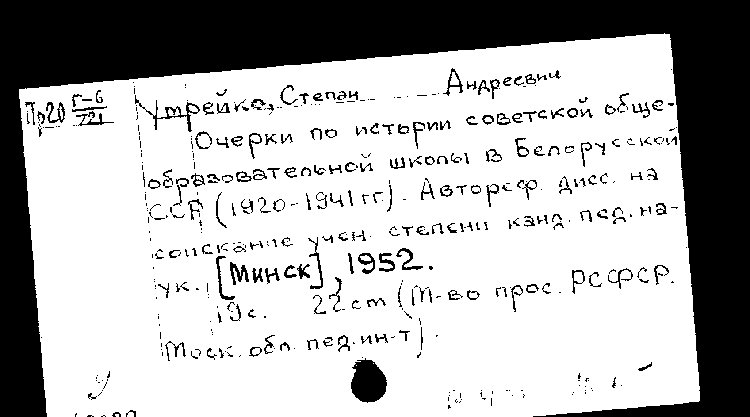 Пр20 Г-6/721
Утрейко, Степан Андреевич
Очерки по истории советской обще-
образовательной школы в Белорусской
ССР (1920-1941 гг). Автореф. дисс. на
соискание учен. степени канд. пед. на-
ук. [Минск], 1952.
19 с. 22 cm (М-во прос. РСФСР.
Моск. обл. пед. ин-т).
У